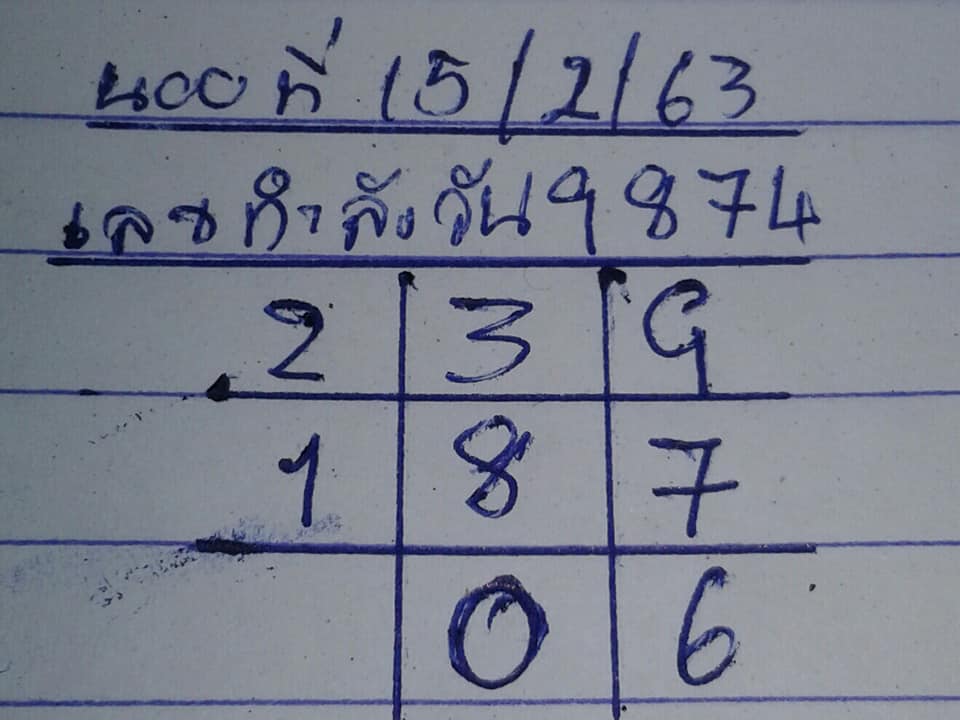 นออที่ 15/2/63
เลขกำลังวัน 9874
2 3 9
1 8 7
0 6